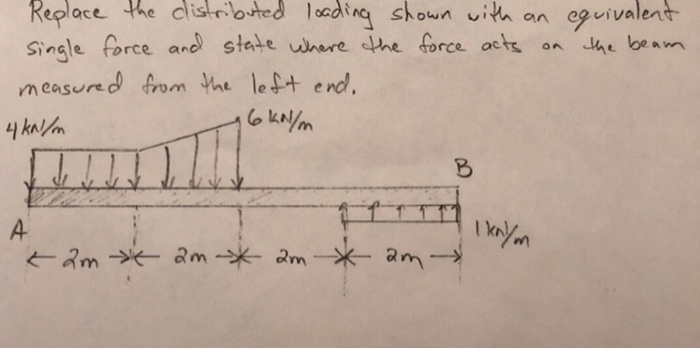 Replace the distributed loading shown with an equivalent
single force and state where the force acts on the beam
measured from the left end.
4 kN/m
6 kN/m
B
A
1 kN/m
2m 2m 2m 2m